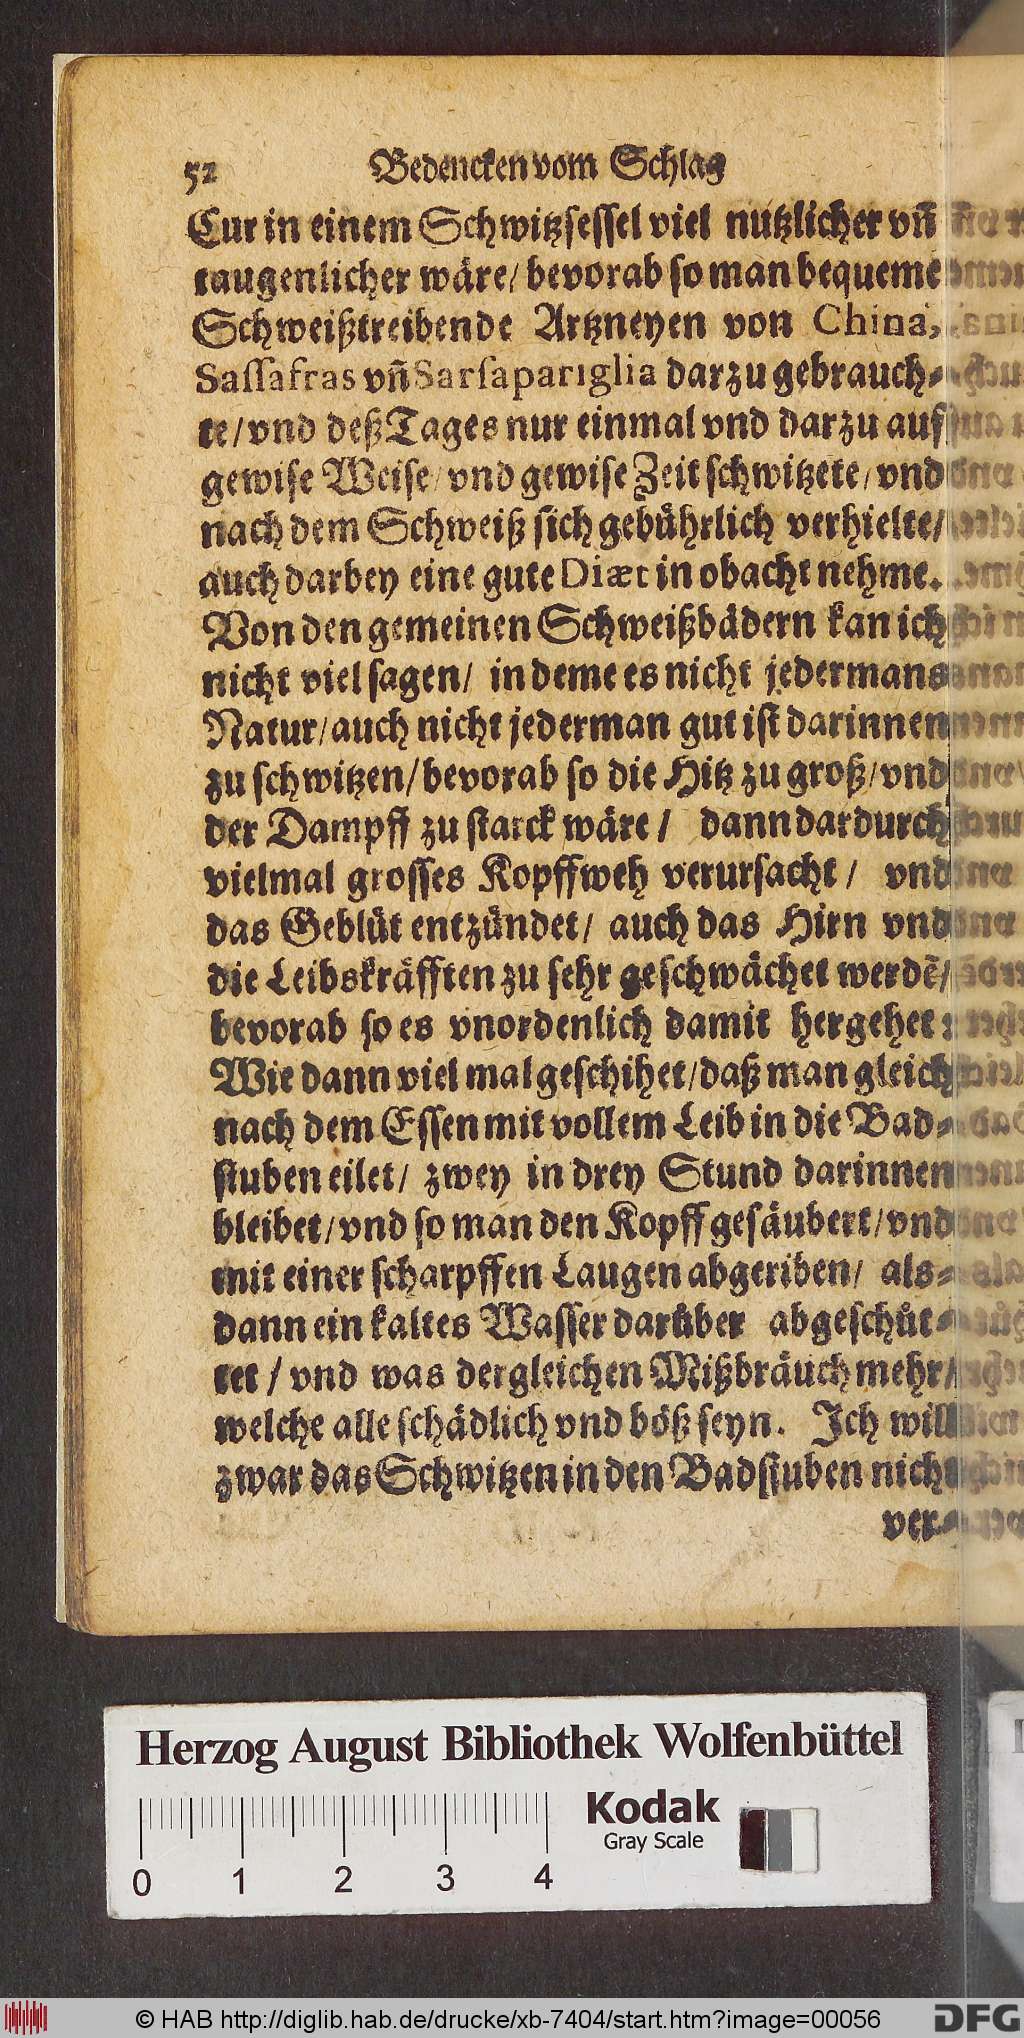 52 Bedencken vom Schlag
Cur in einem Schwitzsessel viel nutzlicher vñ
taugenlicher wäre/ bevorab so man bequeme
Schweißtreibende Artzneyen von China,
Sassafras vñ Sarsapariglia darzu gebrauch-
te/ vnd deß Tages nur einmal vnd darzu auf
gewise Weise/ vnd gewise Zeit schwitzete/ vnd
nach dem Schweiß sich gebührlich verhielte/
auch darbey eine gute Diæt in obacht nehme.
Von den gemeinen Schweißbädern kan ich
nicht viel sagen/ in deme es nicht jedermans
Natur/ auch nicht jederman gut ist darinnen
zu schwitzen/ bevorab so die Hitz zu groß/ vnd
der Dampff zu starck wäre/ dann dardurch
vielmal grosses Kopffweh verursacht/ vnd
das Geblüt entzündet/ auch das Hirn vnd
die Leibskräfften zu sehr geschwächet werdē/
bevorab so es vnordenlich damit hergehet:
Wie dann viel mal geschihet/ daß man gleich
nach dem Essen mit vollem Leib in die Bad-
stuben eilet/ zwey in drey Stund darinnen
bleibet/ vnd so man den Kopff gesäubert/ vnd
mit einer scharpffen Laugen abgeriben/ als-
dann ein kaltes Wasser darüber abgeschüt-
tet/ vnd was dergleichen Mißbräuch mehr/
welche alle schädlich vnd böß seyn. Ich will
zwar das Schwitzen in den Badstuben nicht
ver-
Herzog August Bibliothek Wolfenbüttel
Kodak
Gray Scale
0 1 2 3 4
© HAB http://diglib.hab.de/drucke/xb-7404/start.htm?image=00056
DFG